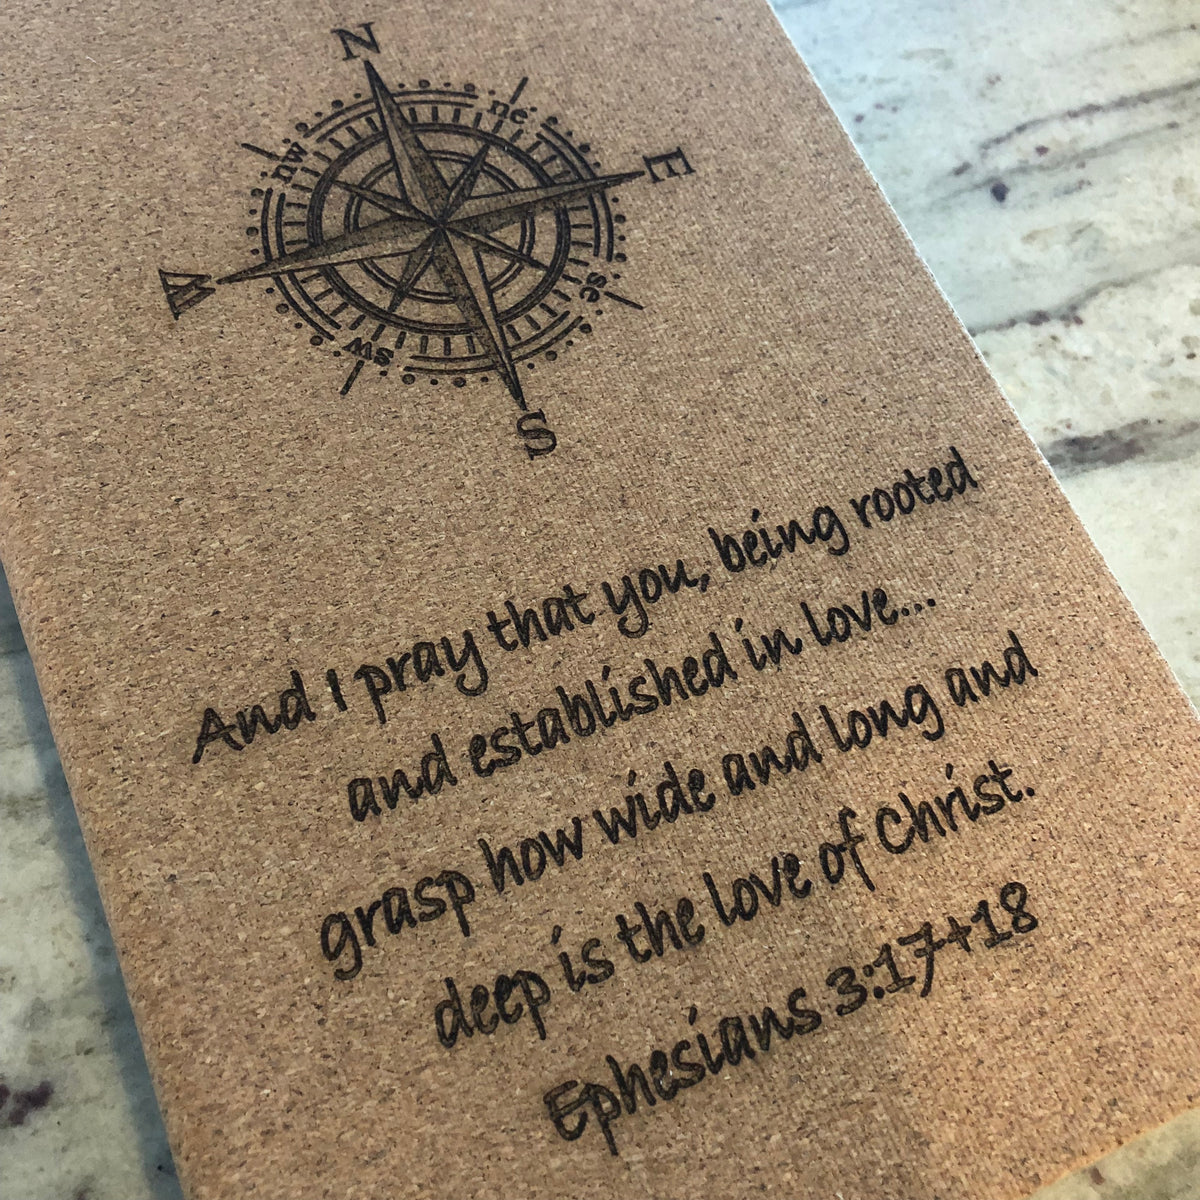 N
nw ne
W E
sw se
S
And I pray that you, being rooted
and established in love...
grasp how wide and long and
deep is the love of Christ.
Ephesians 3:17+18